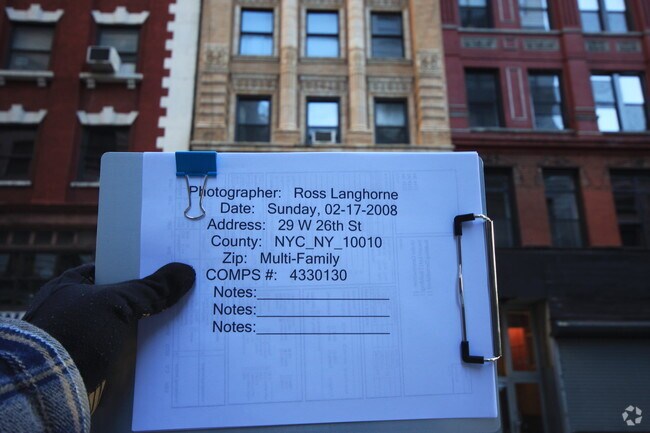 Photographer: Ross Langhorne
Date: Sunday, 02-17-2008
Address: 29 W 26th St
County: NYC_NY_10010
Zip: Multi-Family
COMPS #: 4330130
Notes:____________________
Notes:____________________
Notes:____________________